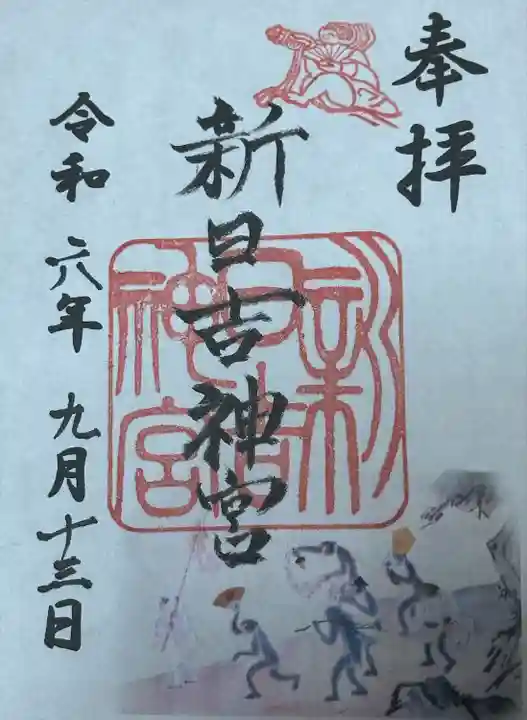 奉拝
新日吉神宮
新日吉神宮
令和 六年 九月十三日